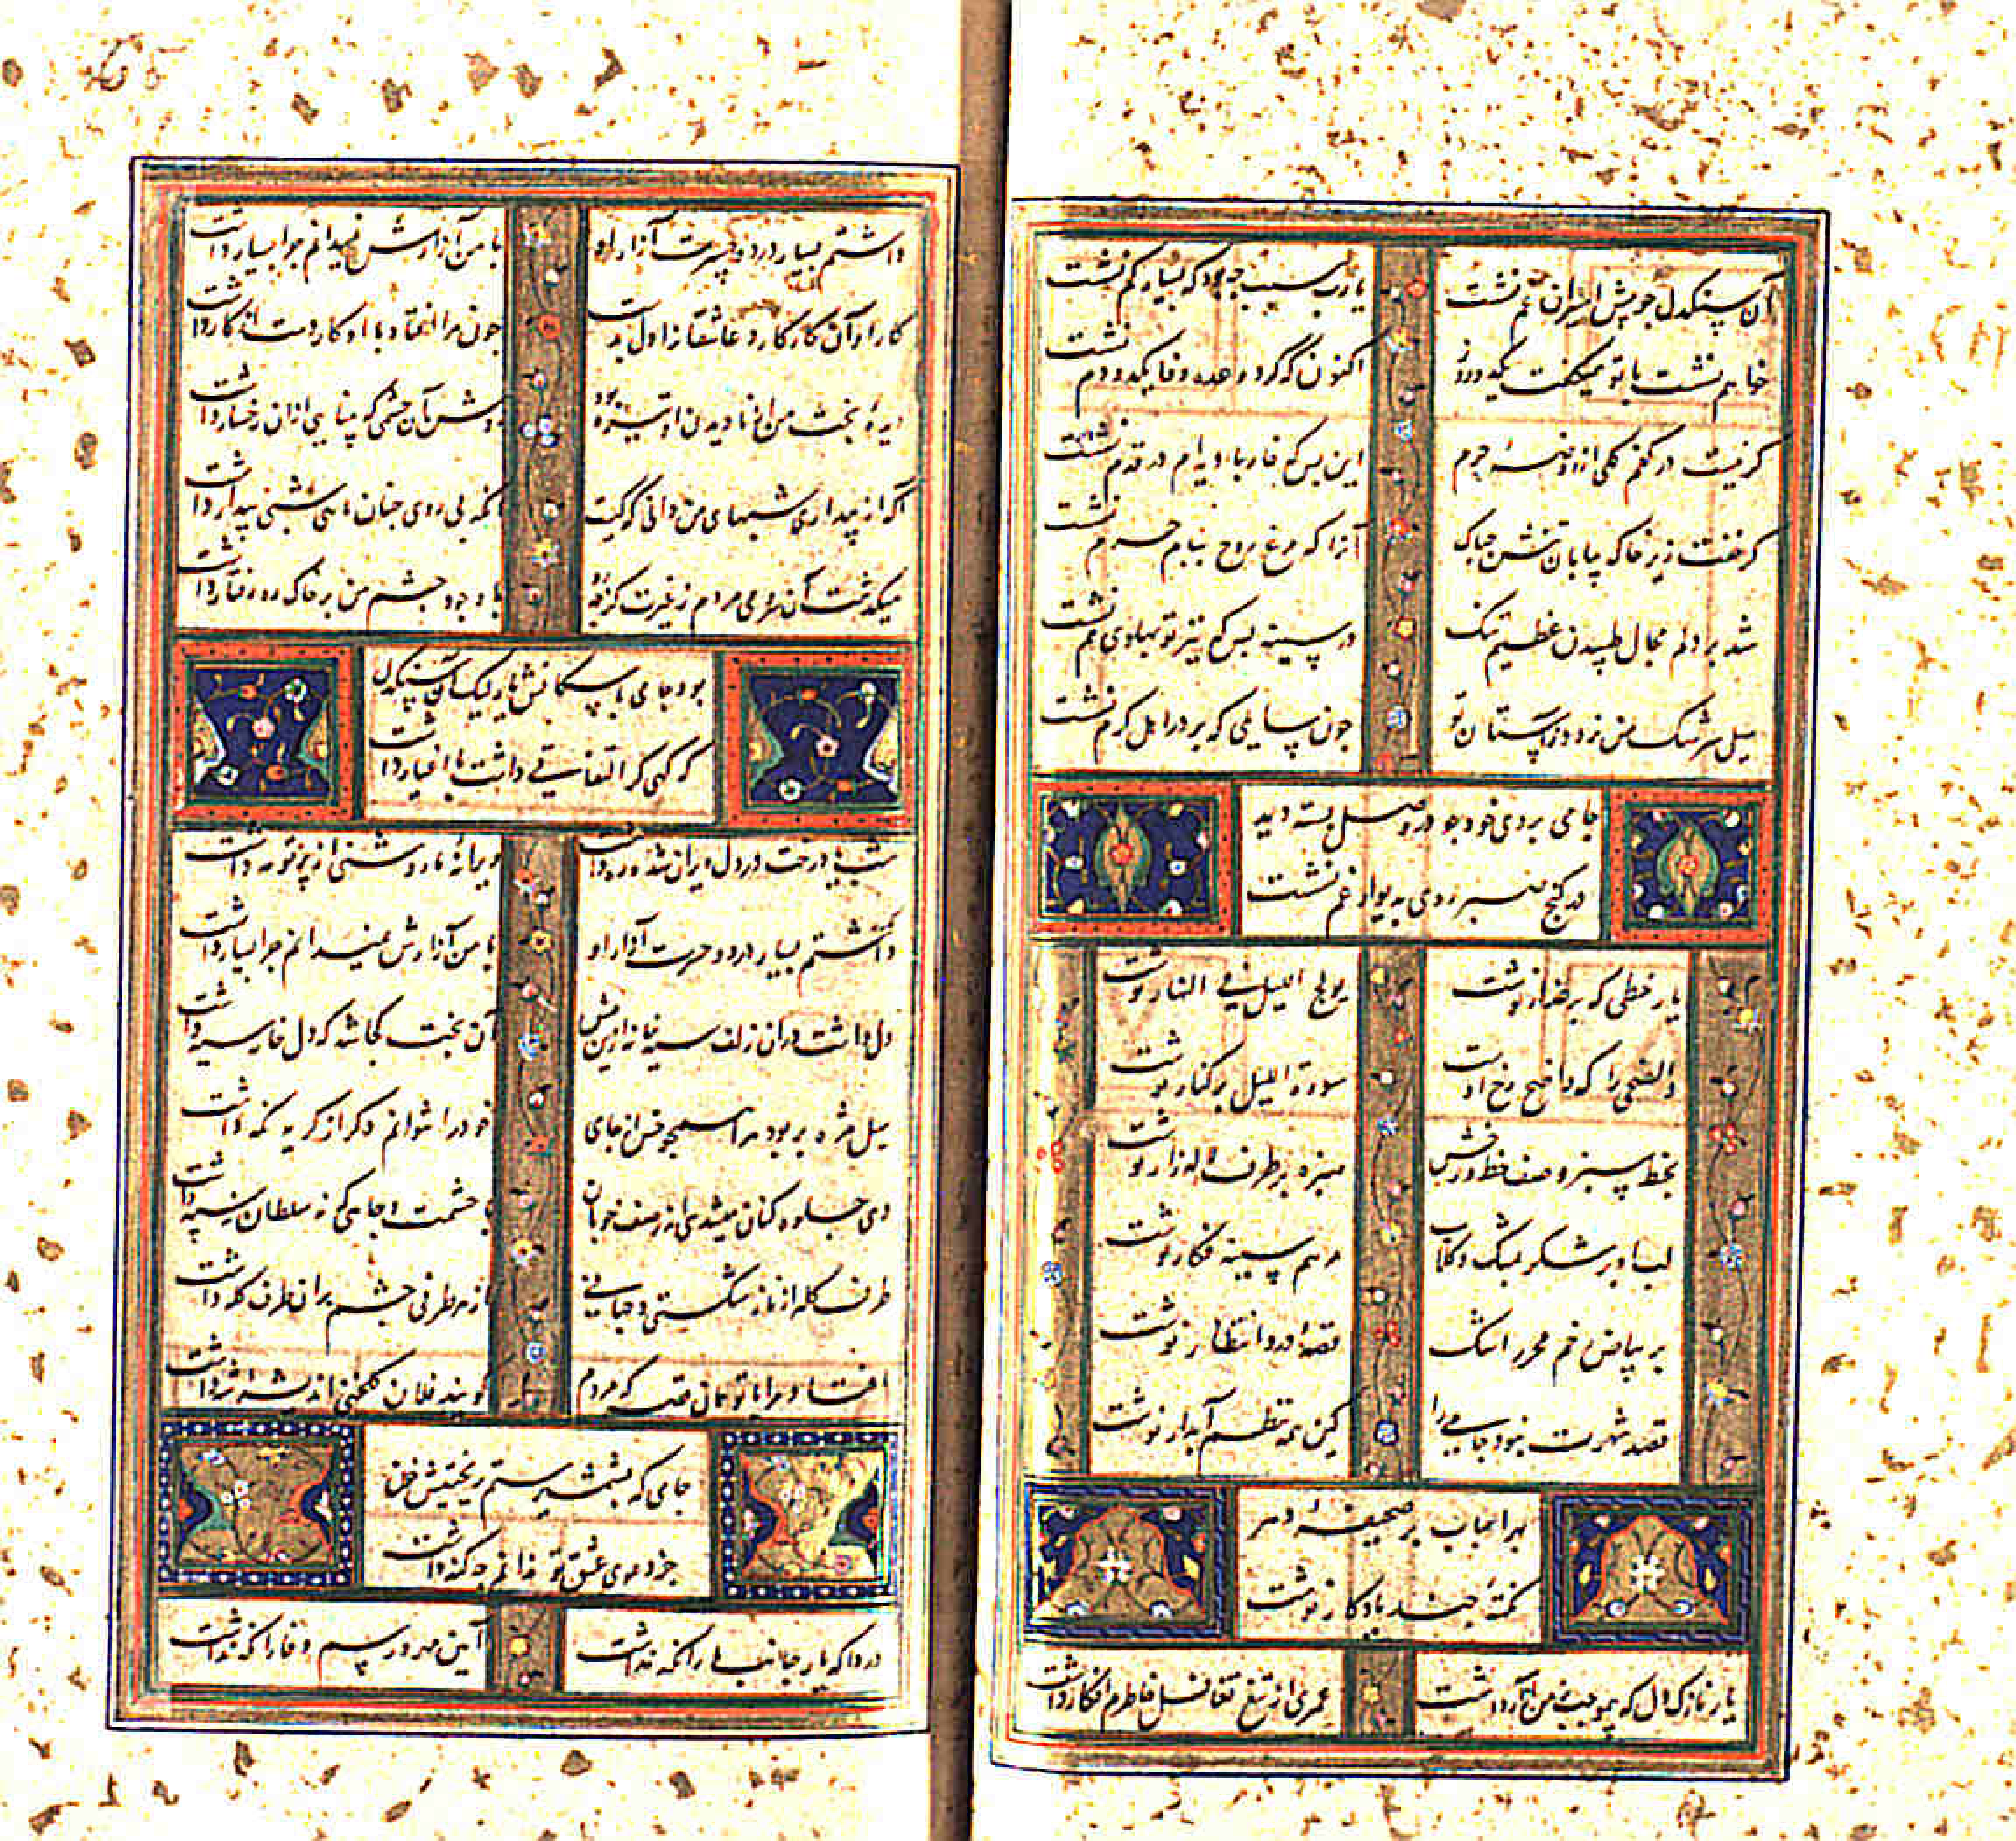 آن سنکدل جو پیش اسیران غم نشست یارب سبب جه بود که بسیار کم نشست
خواهم نشست با تو همیکفت یکدو روز اکنون که کرد وعده وفا یکدو دم نشست
کر نیست در کفم کلی از روضهٔ حرم این بس که خار بادیه ام در قدم نشست
کر خفت زیر خاک بیابان تنش جه باک آنرا که مرغ روح ببام حرم نشست
شد بر دلم مجال طپیدن عظیم تنک در سینه بس که تیر تو پهلوی هم نشست
سیل سرشک من نرود ز آستان تو جون سایلی که بر در اهل کرم نشست
جامی بروی خود جو در وصل بسته دید
در کنج صبر روی بدیوار غم نشست
یار خطی که بر عذار نوشت یولج اللیل فی النهار نوشت
والضحی را که واضح رخ اوست سورة اللیل بر کنار نوشت
بخط سبز وصف خط و رخش سبزه بر طرف لاله زار نوشت
لب او بر شکر بمشک و کلاب مرهم سینه فکار نوشت
بر بیاض خم محرر اشک قصهٔ درد انتظار نوشت
قصد شهرت نبود جامی را کین همه نظم آبدار نوشت
بهر احباب بر صحیفهٔ دهر
نکتهٔ جند یادکار نوشت
یار نازک دل که بموجب ز من آزار داشت عمری از تیغ تغافل خاطرم افکار داشت
داشتم بسیار درد و حسرت آزار او با من آزارش نمیدانم جرا بسیار داشت
کار او آن کار کارد عاشقانرا دل بدست جون مرا افتاد با او کار دست از کار داشت
دیدهٔ بخت من از نادیدن او تیره بود روشن آن جشمی که بینایی از ان رخسار داشت
آکه از بیداری شبهای من دانی که کیست آنکه بی روی جنان ماهی شبی بیدار داشت
میکذشت آن سرو می مردم ز غیرت کز جه رو با وجود جشم من بر خاک ره رفتار داشت
بود جامی با سکانش یار لیک آن سنکدل
که کهی کر التفاتی داشت با اغیار داشت
شب یاد رخت در دل ویران شده ره داشت ویرانهٔ ما روشنی از پرتو مه داشت
داشتم بسیار درد و حسرت آزار او با من آزارش نمیدانم جرا بسیار داشت
دل داشت در ان زلف سیه خانه ازین پیش آن بخت کجا شد که دل خانه سیه داشت
سیل مژه بربود مرا همجو خس از جای خود را نتوانم دکر از کریه نکه داشت
دی جلوه کنان میشدی از صف خوبان با حشمت و جاهی که نه سلطان نه سپه داشت
طرف کله از ناز شکستی و جهانی از هر طرفی جشم بران طرف کله داشت
افتاد مرا با تو همان قصه که مردم کویند فلان کلخنی اندیشهٔ شه داشت
جامی که بشمشیر ستم ریختیش خون
جز دعوی عشق تو ندانم جه کنه داشت
دردا که یار جانب ما را نکه نداشت آیین مهر و رسم وفا را نکه نداشت